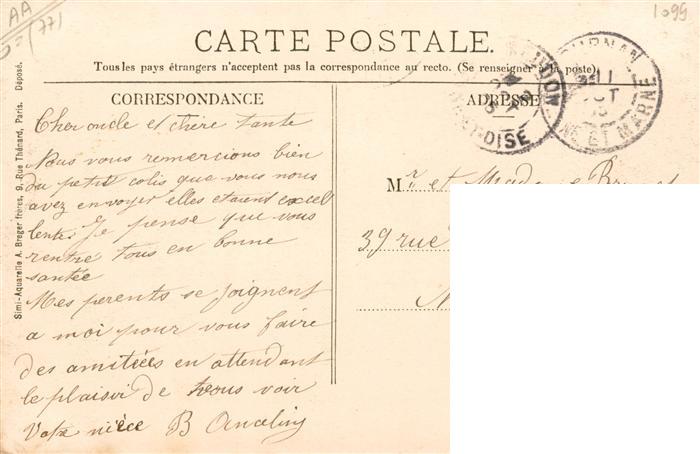 AA
(77)
1099
CARTE POSTALE.
Tous les pays étrangers n'acceptent pas la correspondance au recto. (Se renseigner à la poste).
CORRESPONDANCE
Cher oncle et chère tante
Nous vous remercions bien
du petit colis que vous nous
avez envoyer elles etaient excel
lentes Je pense que vous
rentre tous en bonne
santée
Mes perents se joignent
a moi pour vous faire
des amitiées en attendant
le plaisir de vous voir
Votre nièce B
Simi-Aquarelle A. Breger frères, 9, Rue Thénard, Paris. Déposé.
ADRESSE
Mr et Madame
39 rue
OURNAN
11
OCT
NE ET MARNE
OISE